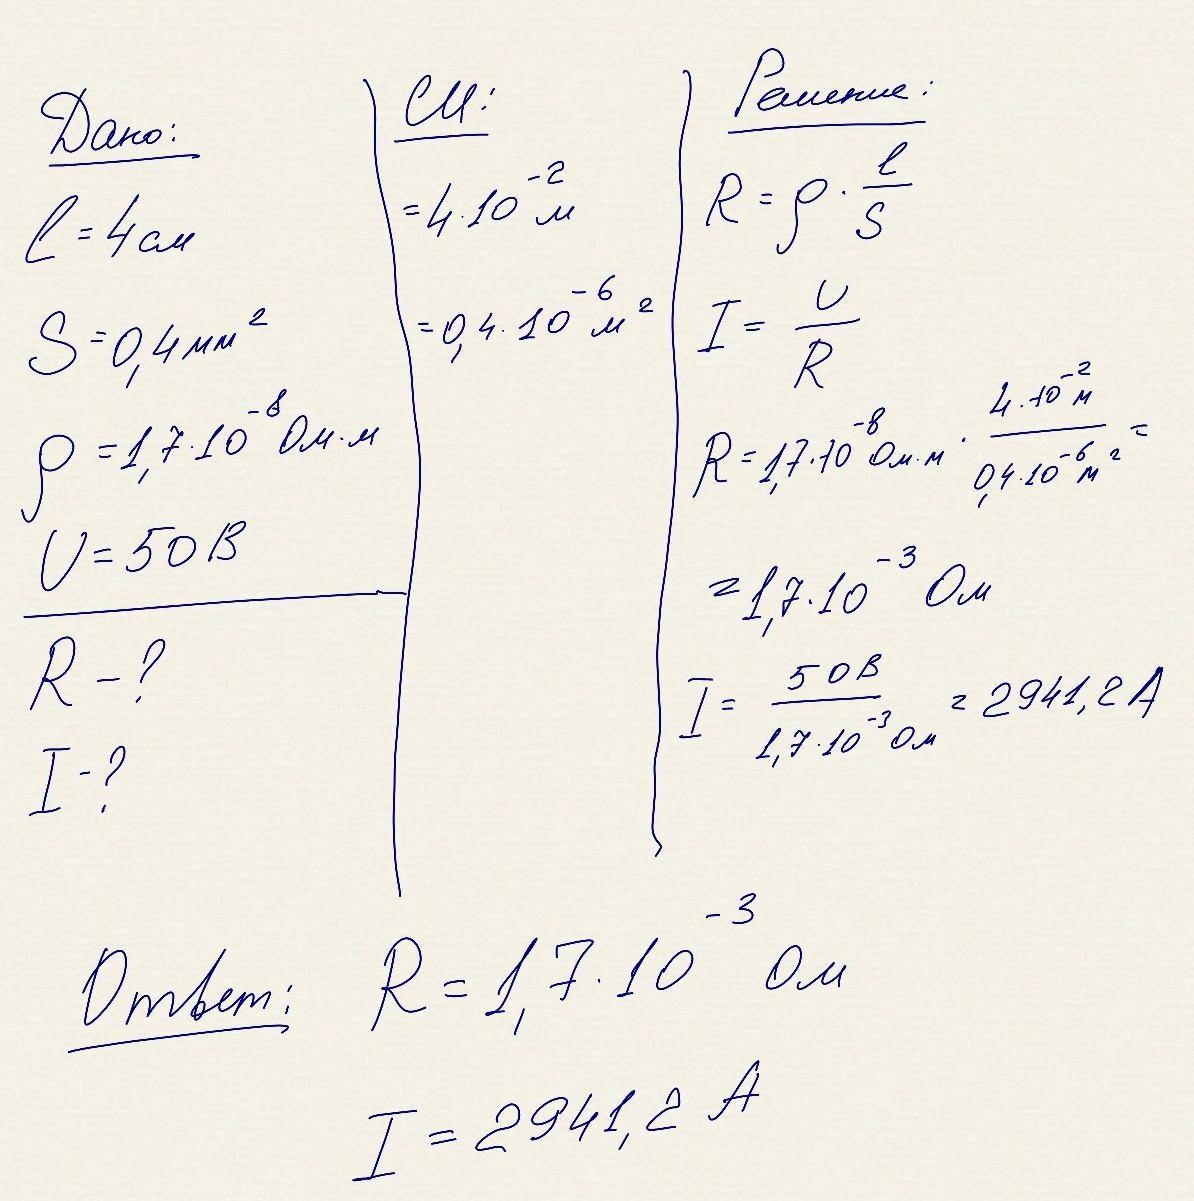 Дано:
l = 4 см
S = 0,4 мм²
ρ = 1,7·10⁻⁸ Ом·м
U = 50 В
R - ?
I - ?
СИ:
= 4·10⁻² м
= 0,4·10⁻⁶ м²
Решение:
R = ρ · l/S
I = U/R
R = 1,7·10⁻⁸ Ом·м · 4·10⁻² м / 0,4·10⁻⁶ м² =
= 1,7·10⁻³ Ом
I = 50 В / 1,7·10⁻³ Ом = 2941,2 А
Ответ: R = 1,7·10⁻³ Ом
I = 2941,2 А